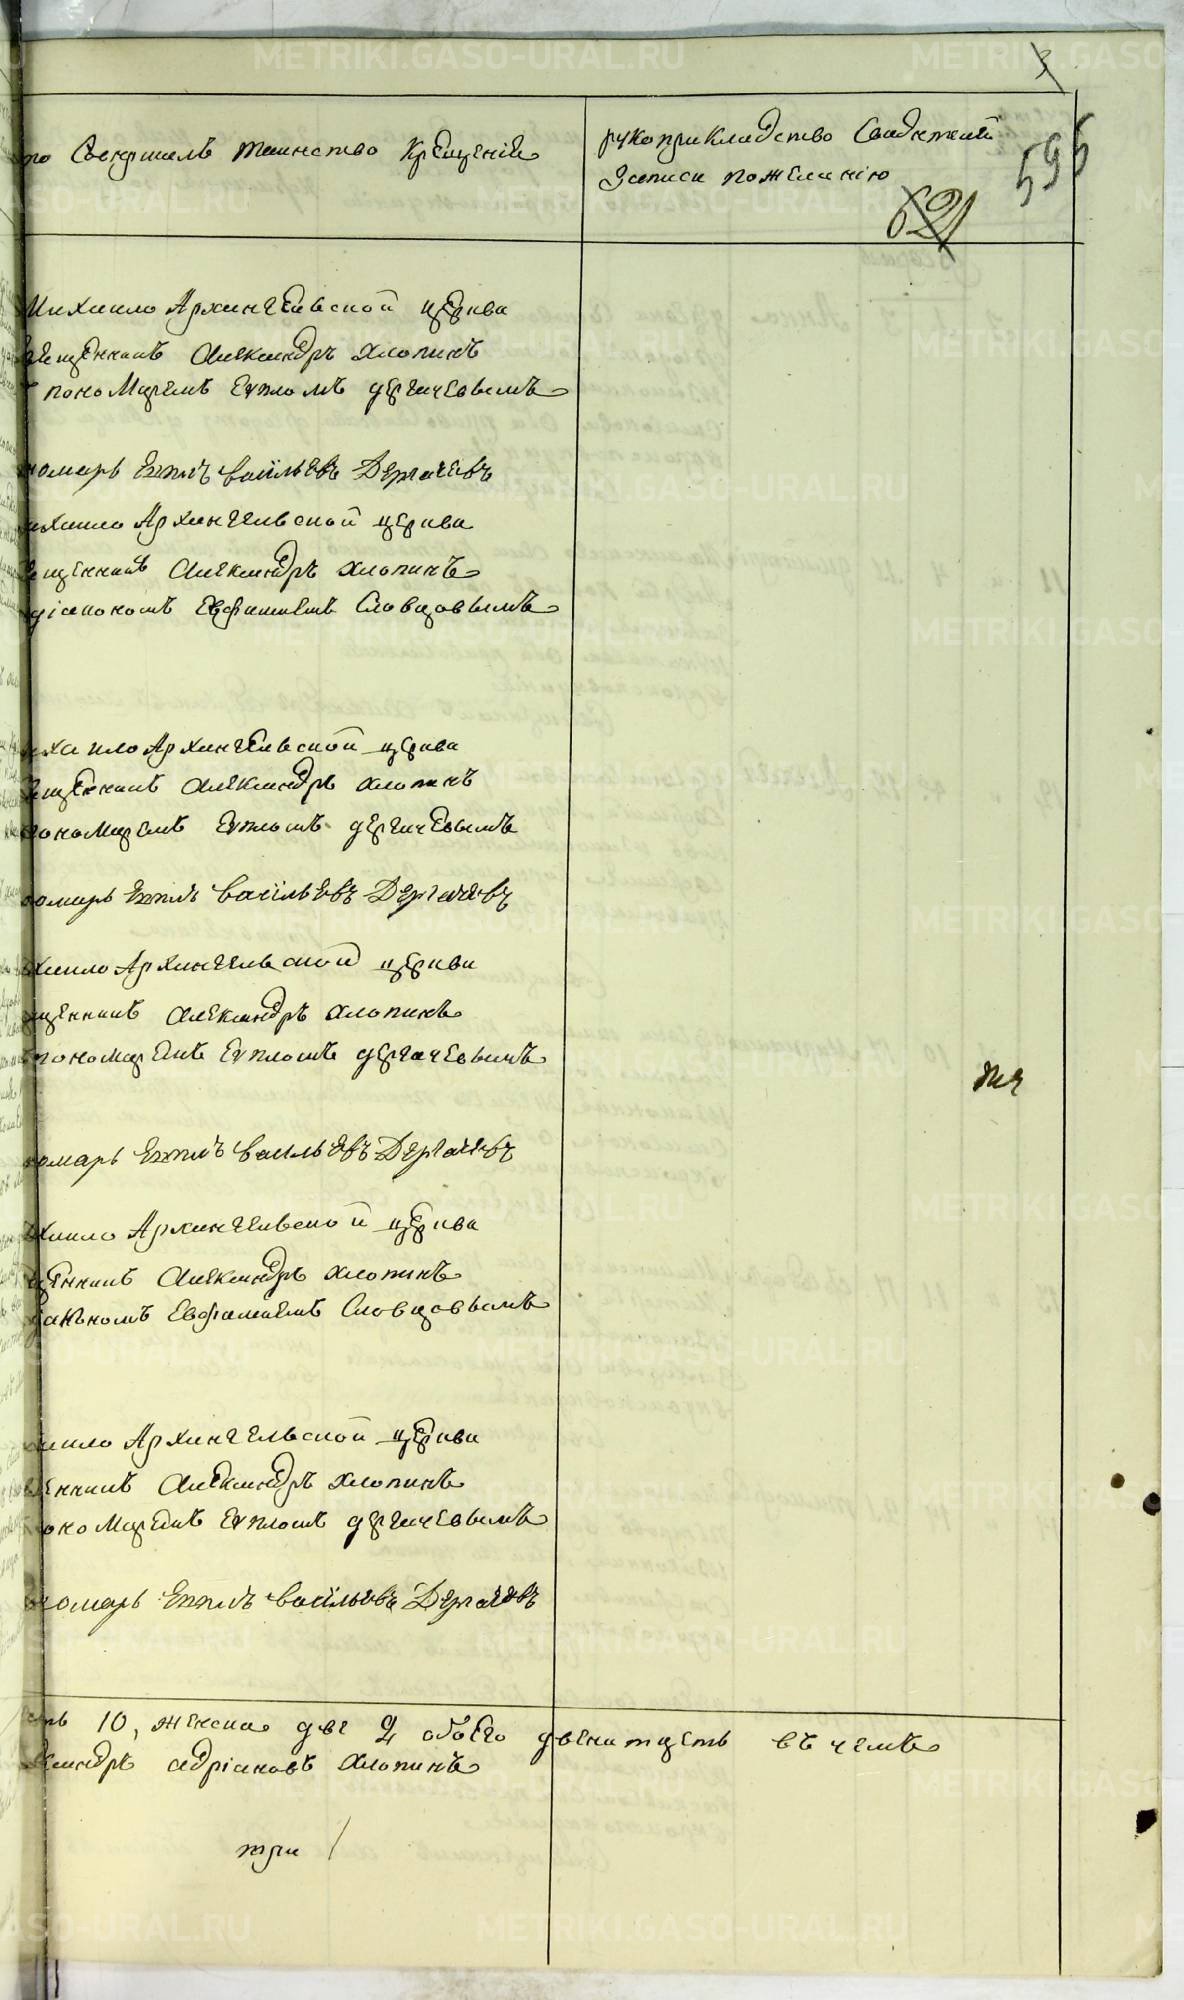 3
595
621
то Совершалъ таинство Крещенія
рукоприкладство Свидѣтелей
Записи пожеланію
Михаило Архангельской церкви
священникъ Александръ Хлопинъ
пономаремъ Евпломъ дергачевымъ
номарь Евплъ васильевъ Дергачевъ
ихаило Архангельской церкви
ященникъ Александръ Хлопинъ
діакономъ Евфимиемъ Словцовымъ
ихаило Архангельской церкви
ященникъ Александръ Хлопинъ
пономаремъ Евпломъ дергачевымъ
номарь Евплъ васильевъ Дергачевъ
хаило Архангельской церкви
щенникъ Александръ Хлопинъ
пономаремъ Евпломъ дергачевымъ
номарь Евплъ васильевъ Дергачевъ
хаило Архангельской церкви
щенникъ Александръ Хлопинъ
иакономъ Евфимиемъ Словцовымъ
аило Архангельской церкви
щенникъ Александръ Хлопинъ
ономаремъ Евпломъ дергачевымъ
номарь Евплъ васильевъ Дергачевъ
ть 10, женска две 2 обоего двенатцеть въ чемъ
ександръ адріановъ Хлопинъ
три
METRIKI.GASO-URAL.RU